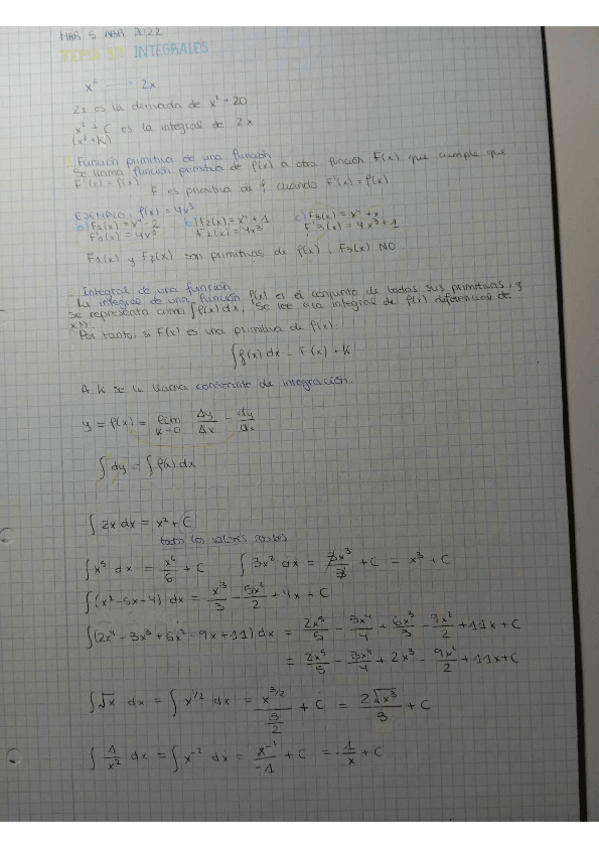 MAR 5 ABR 2022
INTEGRALES
x² 2x
2x es la derivada de x² + 20
x² + C es la integral de 2x
(x² + K)
Función primitiva de una función
Se llama función primitiva de f(x) a otra función F(x) que cumple que
F'(x) = f(x) F es primitiva de f cuando F'(x) = f(x)
EJEMPLO f(x) = 4x³
a) F₁(x) = x⁴ - 2 b) F₂(x) = x⁴ + 1 c) F₃(x) = x⁴ + x
F'₁(x) = 4x³ F'₂(x) = 4x³ F'₃(x) = 4x³ + 1
F₁(x) y F₂(x) son primitivas de f(x), F₃(x) NO.
Integral de una función
La integral de una función f(x) es el conjunto de todas sus primitivas, y
se representa como ∫f(x)dx. Se lee "la integral de f(x) diferencial de
x".
Por tanto, si F(x) es una primitiva de f(x):
∫f(x) dx = F(x) + K
A K se le llama constante de integración.
y = f(x) = lim K→0 Δy/Δx = dy/dx
∫dy = ∫f(x) dx
∫2x dx = x² + C
todos los valores reales
∫x⁵ dx = x⁶/6 + C ∫3x² dx = 3x³/3 + C = x³ + C
∫(x² - 5x - 4) dx = x³/3 - 5x²/2 + 4x + C
∫(2x⁴ - 3x³ + 6x² - 9x + 11) dx = 2x⁵/5 - 3x⁴/4 + 6x³/3 - 9x²/2 + 11x + C
= 2x⁵/5 - 3x⁴/4 + 2x³ - 9x²/2 + 11x + C
∫√x dx = ∫x^1/2 dx = x^3/2 / 3/2 + C = 2√x³/3 + C
∫1/x² dx = ∫x⁻² dx = x⁻¹/-1 + C = -1/x + C